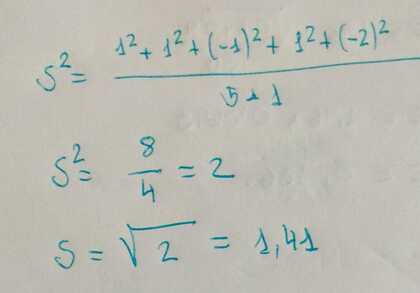 S² = (1² + 1² + (-1)² + 1² + (-2)²) / (5 - 1)
S² = 8/4 = 2
S = √2 = 1,41